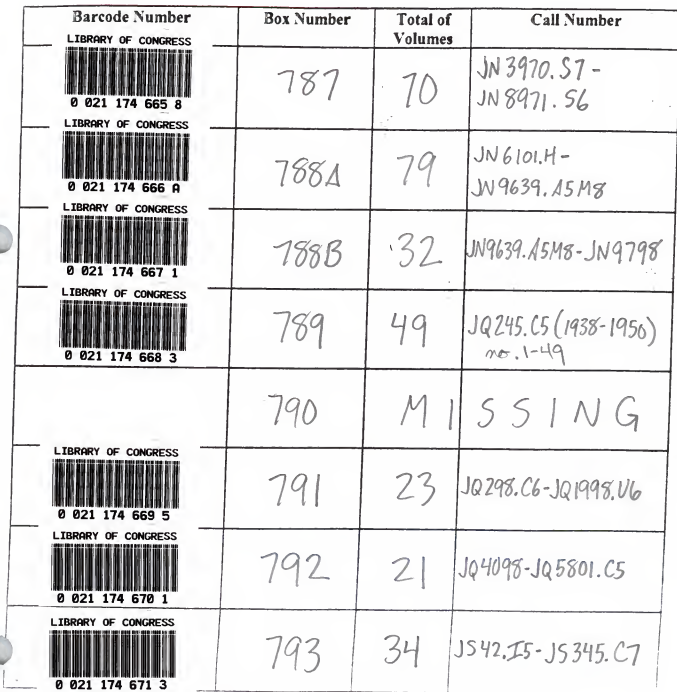 Barcode Number Box Number Total of Volumes Call Number
LIBRARY OF CONGRESS
0 021 174 665 8
787 70 JN 3970.S7 -
JN 8971.S6
LIBRARY OF CONGRESS
0 021 174 666 A
788A 79 JN 6101.H-
JN9639.A5M8
LIBRARY OF CONGRESS
0 021 174 667 1
788B 32 JN9639.A5M8-JN9798
LIBRARY OF CONGRESS
0 021 174 668 3
789 49 JQ245.C5 (1938-1950)
no. 1-49
790 MISSING
LIBRARY OF CONGRESS
0 021 174 669 5
791 23 JQ298.C6-JQ1998.U6
LIBRARY OF CONGRESS
0 021 174 670 1
792 21 JQ4098-JQ5801.C5
LIBRARY OF CONGRESS
0 021 174 671 3
793 34 JS42.I5-JS345.C7